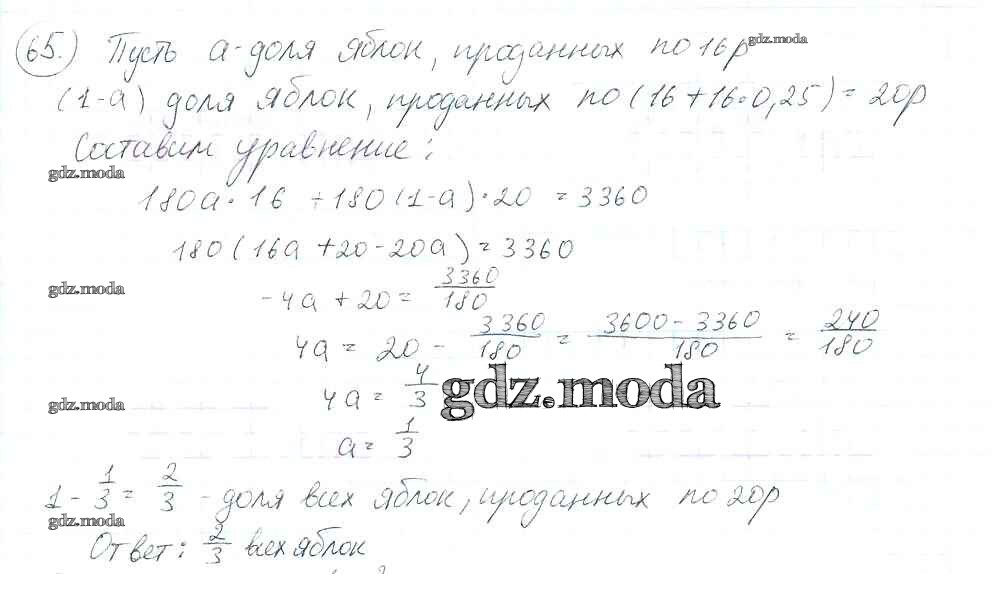 65. Пусть а - доля яблок, проданных по 16р
gdz.moda
(1-а) доля яблок, проданных по (16+16·0,25)= 20р
Составим уравнение:
gdz.moda
180а·16 +180(1-а)·20 = 3360
180(16а+20-20а)=3360
gdz.moda
-4а+20= 3360/180
4а= 20 - 3360/180 = 3600-3360/180 = 240/180
gdz.moda
4а= 4/3
gdz.moda
а= 1/3
1 - 1/3 = 2/3 - доля всех яблок, проданных по 20р
gdz.moda
Ответ: 2/3 всех яблок